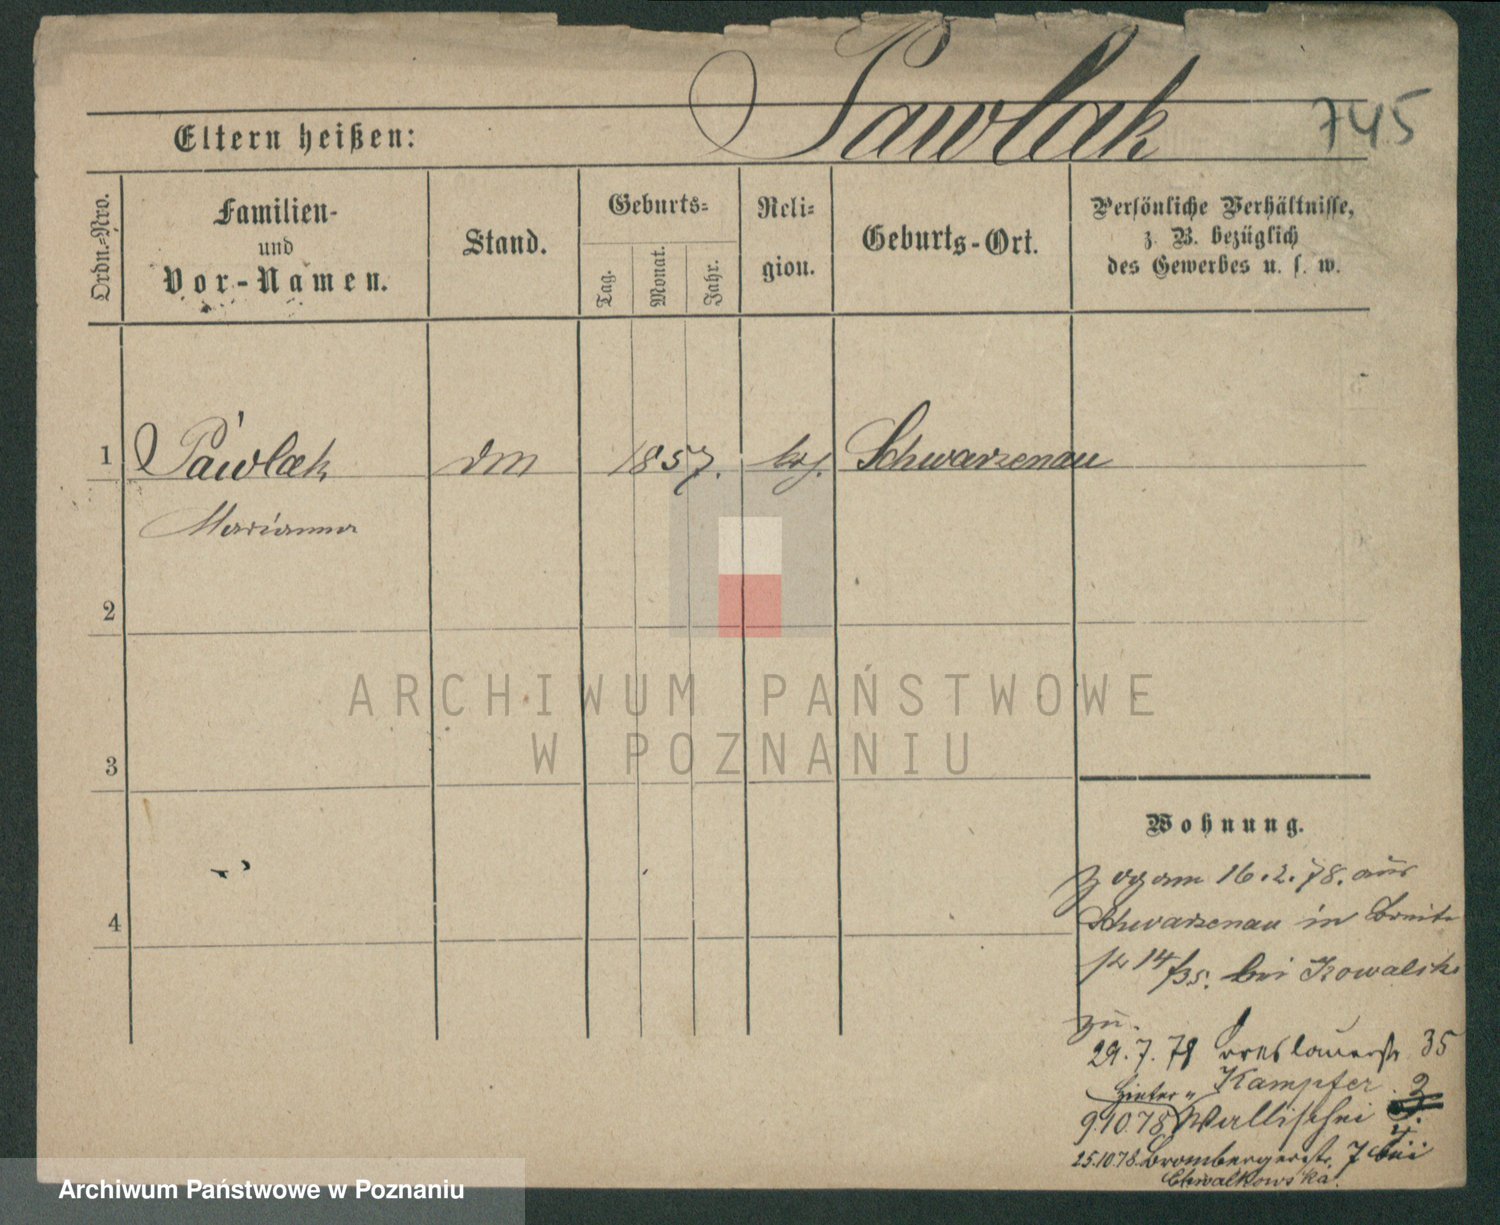 Pawlak 745
Eltern heißen:
Ordn.=Nro.
Familien-
und
Vor-Namen.
Stand.
Geburts=
Tag.
Monat.
Jahr.
Reli=
gion.
Geburts-Ort.
Persönliche Verhältnisse,
z. B. bezüglich
des Gewerbes u. s. w.
1 Pawlak dm 1857. Schwarzenau
Marianna
2
3
4
Wohnung.
zog am 16.2.78. aus
Schwarzenau in Breite
str 14/35. bei Kowalski
zu.
29.7.78 Breslauerstr 35
Kampfer
9.10.78 Wallischei
25.10.78. Brombergerstr. 7 bei
Chwalkowska.
ARCHIWUM PAŃSTWOWE
W POZNANIU
Archiwum Państwowe w Poznaniu